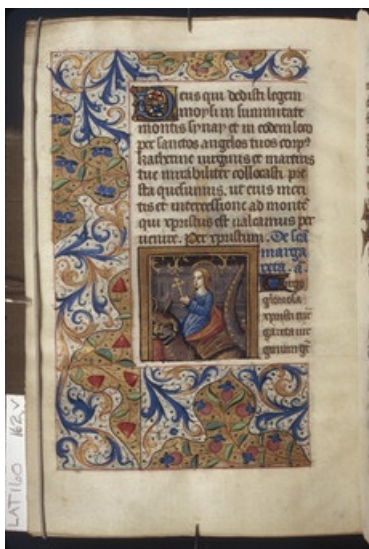 Deus qui dedisti legem
moysi in summitate
montis synay et in eodem loco
per sanctos angelos tuos corpꝰ
katherine virginis et martiris
tue mirabiliter collocasti pre
sta quesumus. ut eius meri
tis et intercessione ad monte
qui xpristus est valeamus per
uenire. Per xpristum. De sca
marga
rita. a.
Virgo
xpristi mar
gareta
LAT 160 162v